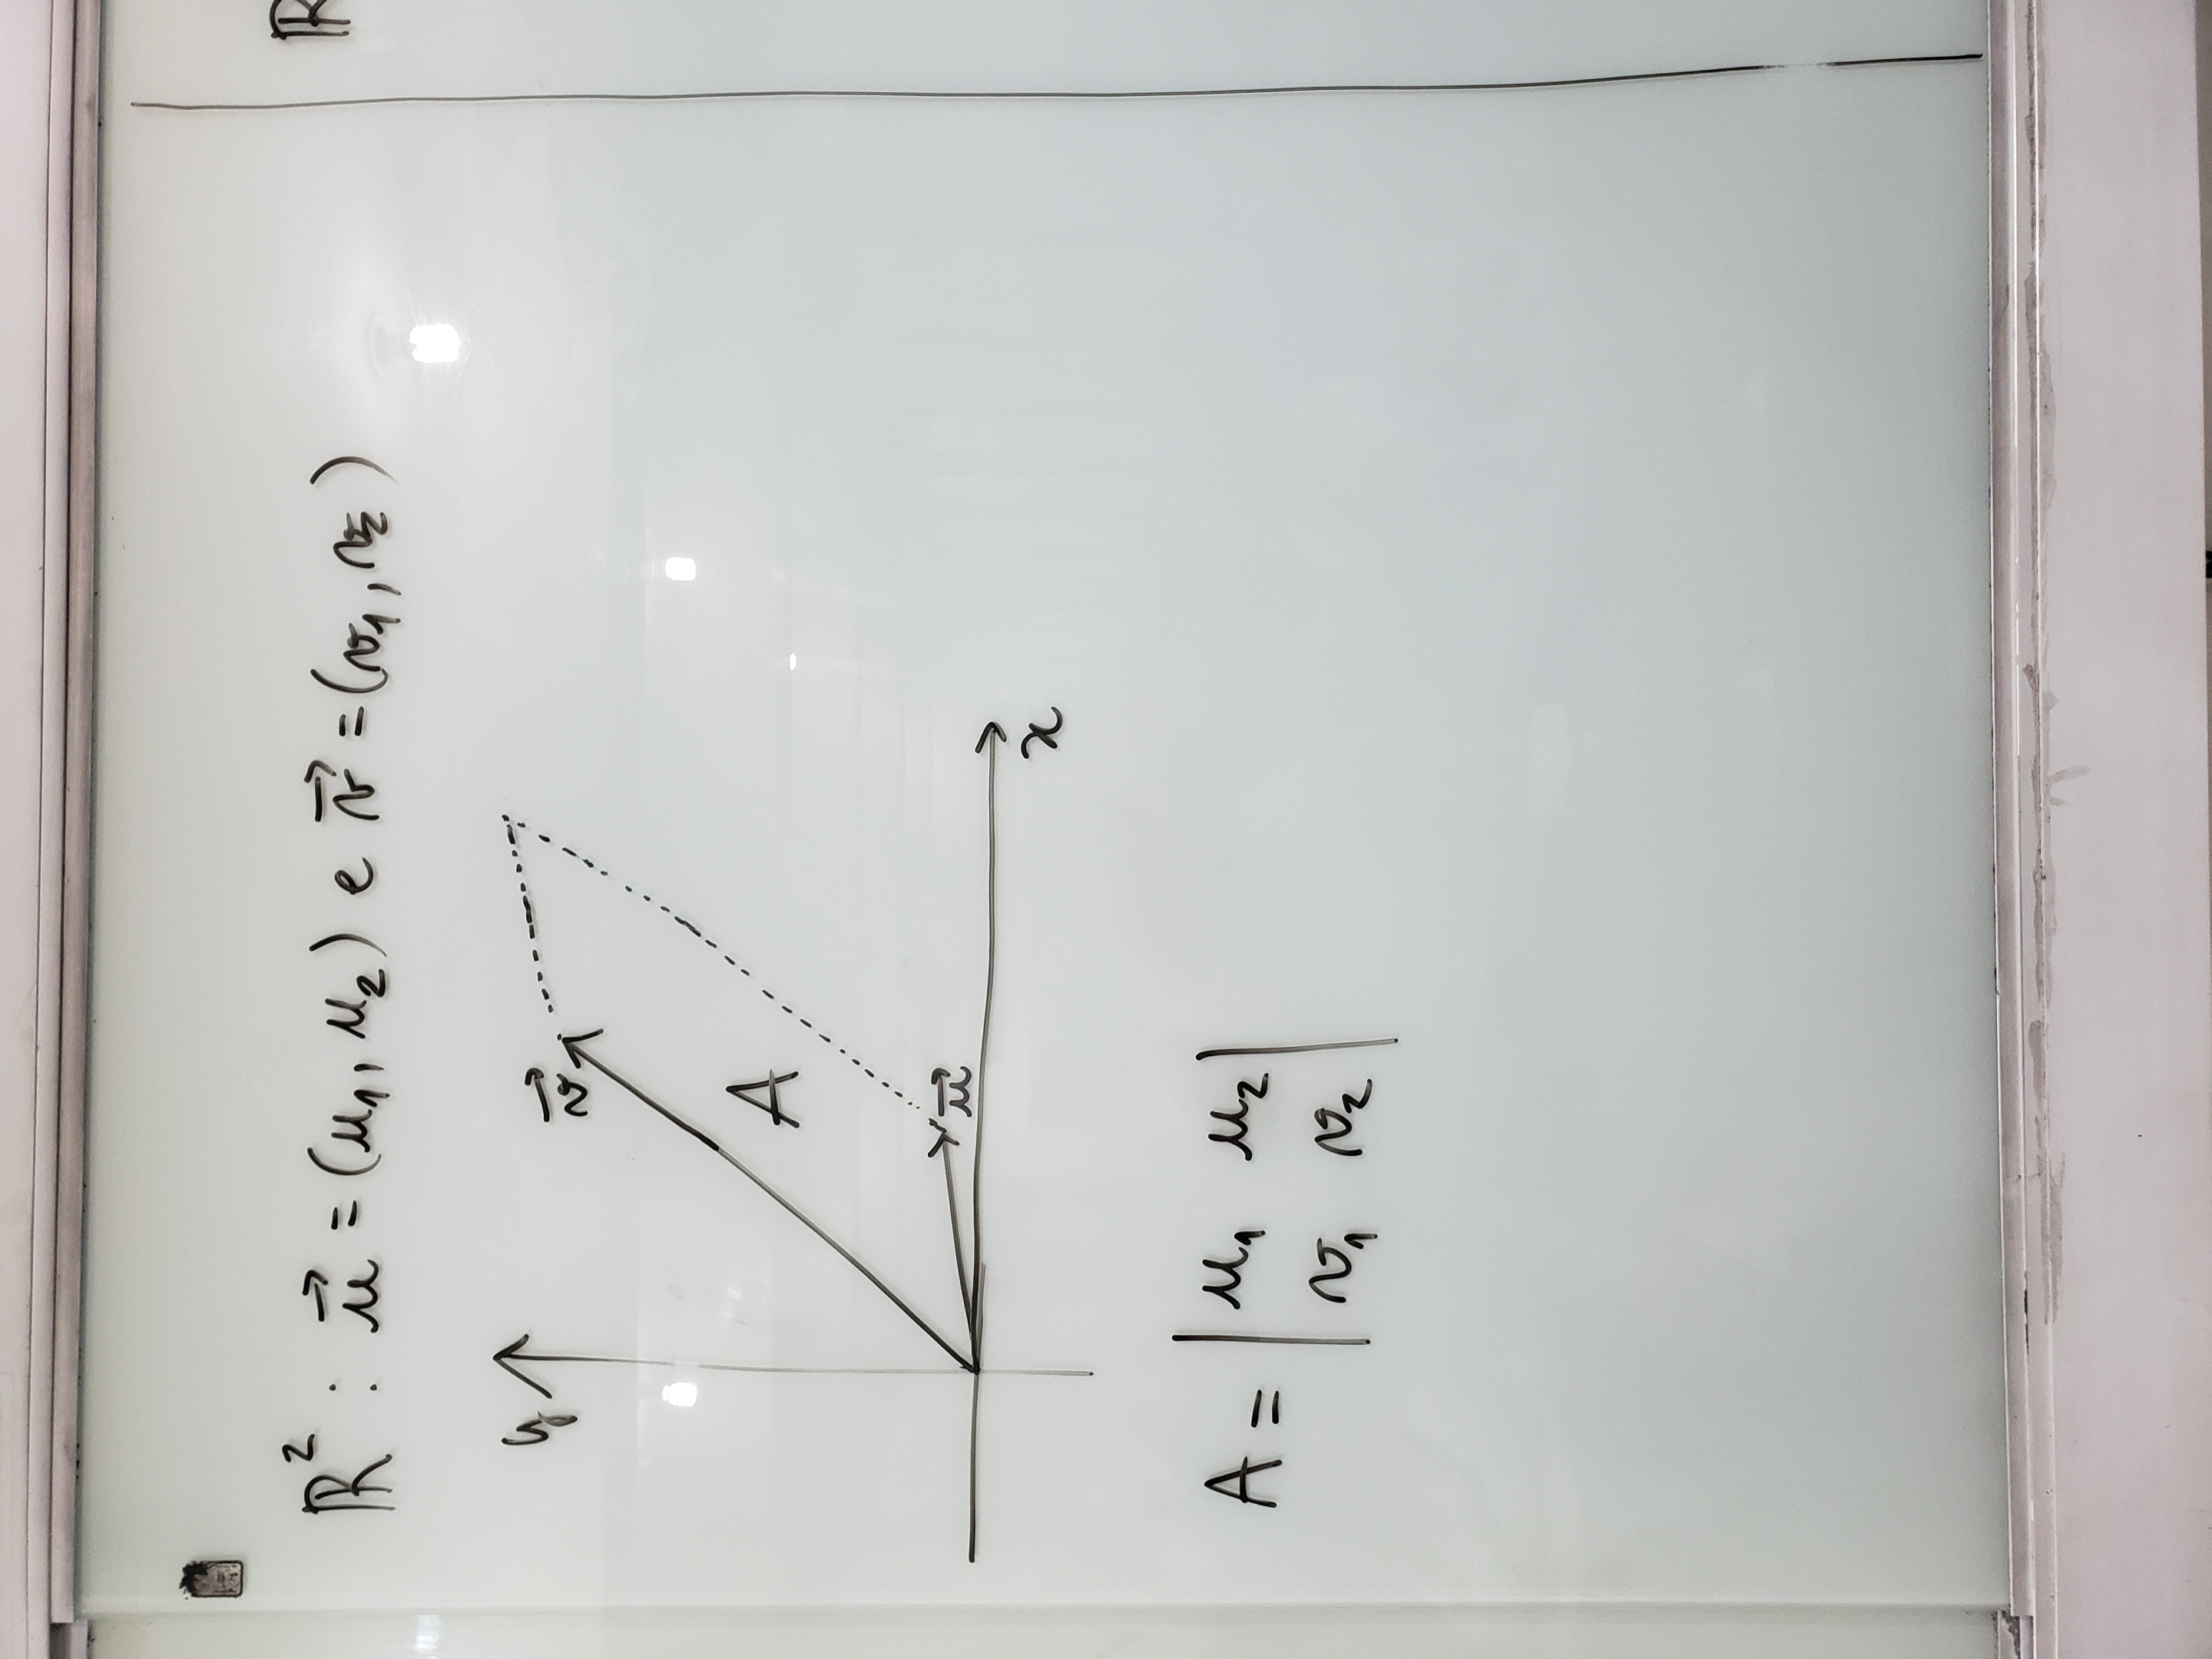 ℝ² : u⃗ = (u₁, u₂) e v⃗ = (v₁, v₂)
ℝ
y
v⃗
A
u⃗
x
A = | u₁ u₂ |
| v₁ v₂ |